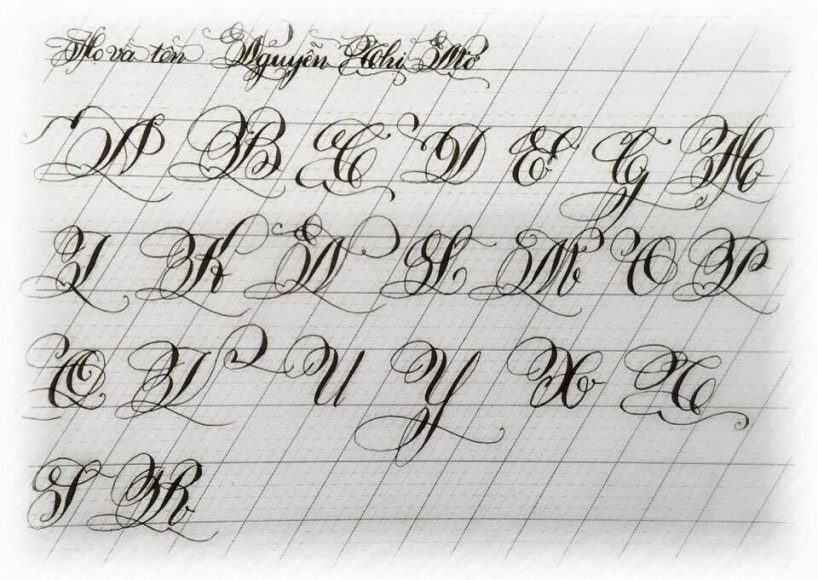 Họ và tên Nguyễn Thị Mơ
A B C D E G H
I K N S M O P
Q T V U Y X
S R